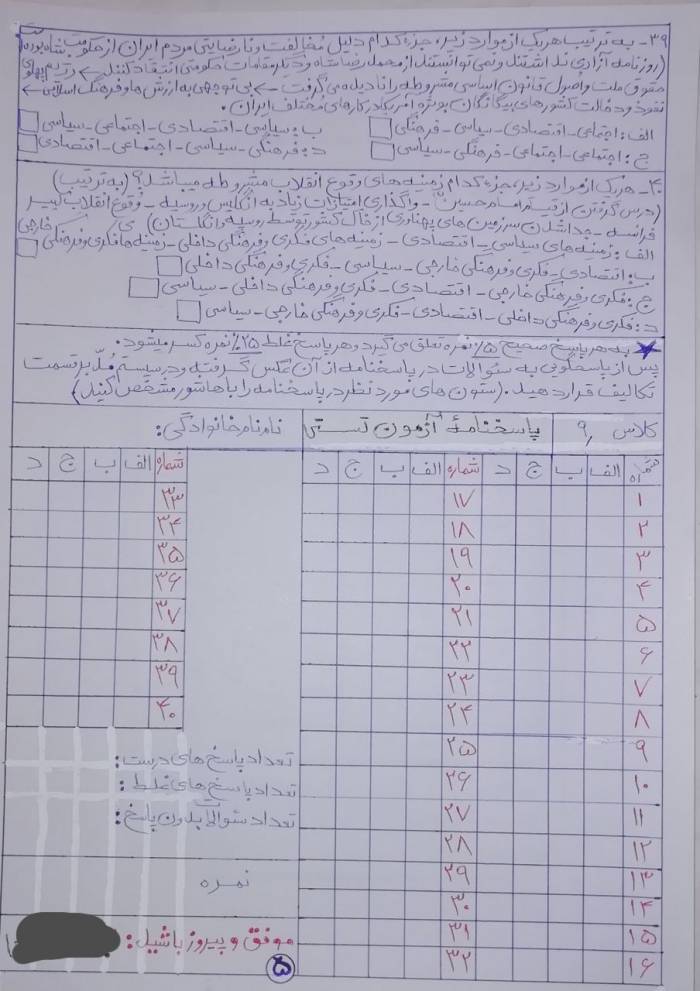 ۳۹- به ترتیب هریک از موارد زیر، جزء کدام دلیل مخالفت و نارضایتی مردم ایران از حکومت شاه بوده است
(روزنامه آزادی نداشتند و نمی توانستند از محمدرضا شاه و دیگر مقامات حکومتی انتقاد کنند ← رژیم پهلوی
حقوق ملت و اصول قانون اساسی مشروطه را نادیده می گرفت - ← بی توجهی به ارزش ها و فرهنگ اسلامی ←
نفوذ و دخالت کشورهای بیگانگان بویژه آمریکا در کارهای مختلف ایران.
الف: اجتماعی - اقتصادی - سیاسی - فرهنگی ب: سیاسی - اقتصادی - اجتماعی - سیاسی
ج: اجتماعی - اجتماعی - فرهنگی - سیاسی د: فرهنگی - سیاسی - اجتماعی - اقتصادی
۴۰- هریک از موارد زیر، جزء کدام زمینه های وقوع انقلاب مشروطه میباشد؟ (به ترتیب)
(درس گرفتن از قیام امام حسین - واگذاری امتیازات زیاد به انگلیس و روسیه - وقوع انقلاب کبیر
فرانسه - جدا شدن سرزمین های پهناوری از خاک کشور توسط روسیه و انگلستان)
الف: زمینه های سیاسی - اقتصادی - زمینه های فکری و فرهنگی داخلی - زمینه ها فکری و فرهنگی خارجی
ب: اقتصادی - فکری و فرهنگی خارجی - سیاسی - فکری و فرهنگی داخلی
ج: فکری و فرهنگی خارجی - اقتصادی - فکری و فرهنگی داخلی - سیاسی
د: فکری و فرهنگی داخلی - اقتصادی - فکری و فرهنگی خارجی - سیاسی
به هر پاسخ صحیح ۵٪ نمره تعلق می گیرد و هر پاسخ غلط ۲۵٪ نمره کسر میشود.
پس از پاسخگویی به سئوالات در پاسخنامه از آن عکس گرفته و در سیستم در قسمت
تکالیف قرار دهید. (ستون های مورد نظر در پاسخنامه را با هاشور مشخص کنید)
کلاس ۹ پاسخنامهٔ آزمون تستی نام نام خانوادگی:
شماره الف ب ج د شماره الف ب ج د شماره الف ب ج د
۱ ۱۷ ۳۳
۲ ۱۸ ۳۴
۳ ۱۹ ۳۵
۴ ۲۰ ۳۶
۵ ۲۱ ۳۷
۶ ۲۲ ۳۸
۷ ۲۳ ۳۹
۸ ۲۴ ۴۰
۹ ۲۵ تعداد پاسخ های درست:
۱۰ ۲۶ تعداد پاسخ های غلط:
۱۱ ۲۷ تعداد سوالات بدون پاسخ:
۱۲ ۲۸
۱۳ ۲۹ نمره
۱۴ ۳۰
۱۵ ۳۱ موفق و پیروز باشید:
۱۶ ۳۲
۵